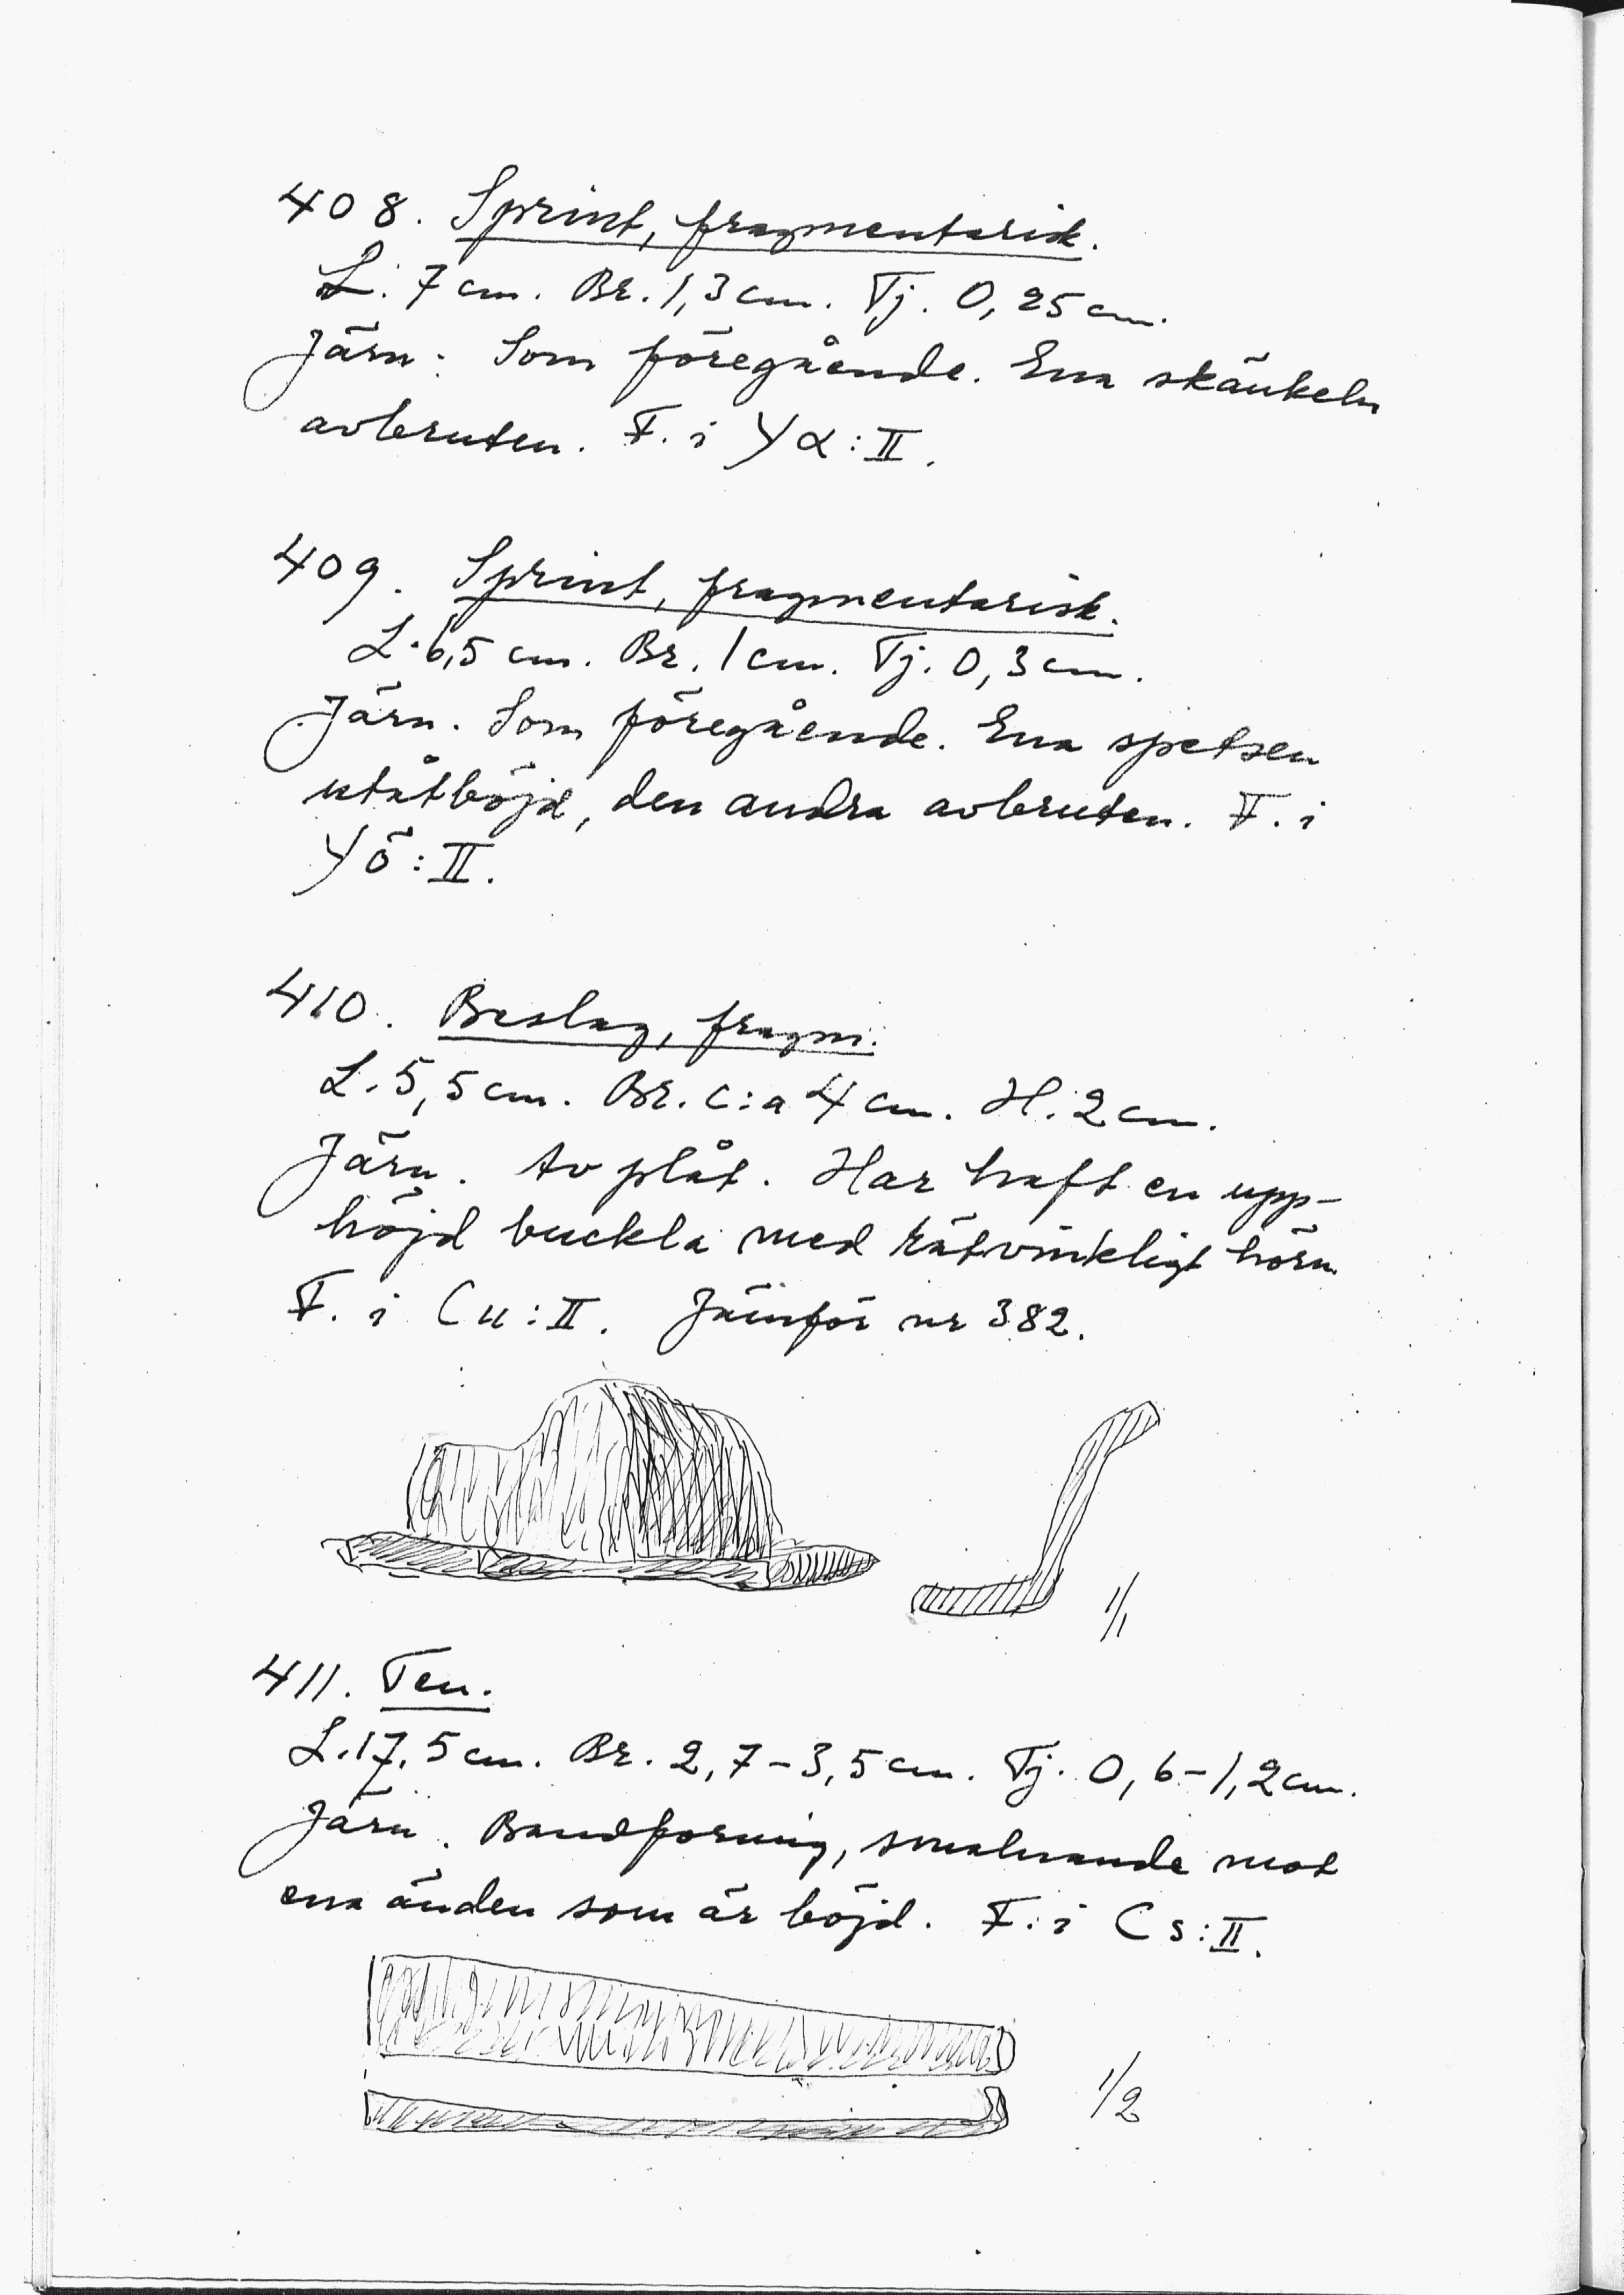 408. Sprint, fragmentarisk.
L. 7 cm. Br. 1,3 cm. Tj. 0,25 cm.
Järn. Som föregående. Ena skänkeln
avbruten. F. i Yα:II.
409. Sprint, fragmentarisk.
L. 6,5 cm. Br. 1 cm. Tj. 0,3 cm.
Järn. Som föregående. Ena spetsen
utåtböjd, den andra avbruten. F. i
Yö:II.
410. Beslag, fragm.
L. 5,5 cm. Br. c:a 4 cm. H. 2 cm.
Järn. Av plåt. Har haft en upp-
höjd buckla med rätvinkligt hörn
F. i Cu:II. Jämför nr 382.
1/1
411. Ten.
L. 17,5 cm. Br. 2,7-3,5 cm. Tj. 0,6-1,2 cm.
Järn. Bandformig, smalnande mot
ena änden som är böjd. F. i Cs:II.
1/2